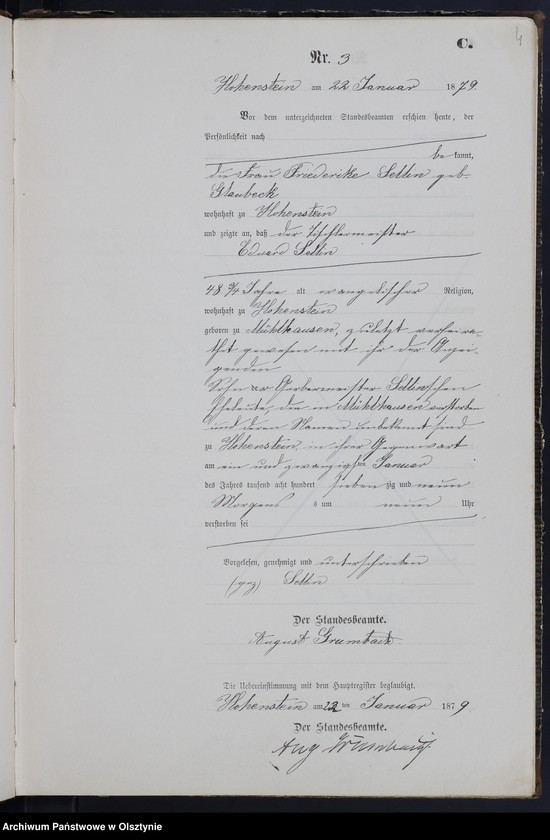 4
C.
Nr. 3
Hohenstein am 22 Januar 1879.
Vor dem unterzeichneten Standesbeamten erschien heute, der
Persönlichkeit nach
be kannt,
die Frau Friederike Sellin geb.
Glaubeck
wohnhaft zu Hohenstein
und zeigte an, daß der Tischlermeister
Eduard Sellin
48 3/4 Jahre alt evangelischer Religion,
wohnhaft zu Hohenstein
geboren zu Mühlhausen, zuletzt verheira-
thet gewesen mit ihr der Anzei-
genden
Sohn der Gerbermeister Sellinschen
Eheleute, die in Mühlhausen verstorben
und deren Namen unbekannt sind
zu Hohenstein, in ihrer Gegenwart
am ein und zwanzigsten Januar
des Jahres tausend acht hundert sieben zig und neun
Morgens s um neun Uhr
verstorben sei
Vorgelesen, genehmigt und unterschrieben
(gez) Sellin
Der Standesbeamte.
August Grumbach
Die Uebereinstimmung mit dem Hauptregister beglaubigt.
Hohenstein am 22 ten Januar 1879
Der Standesbeamte.
Aug Grumbach
Archiwum Państwowe w Olsztynie